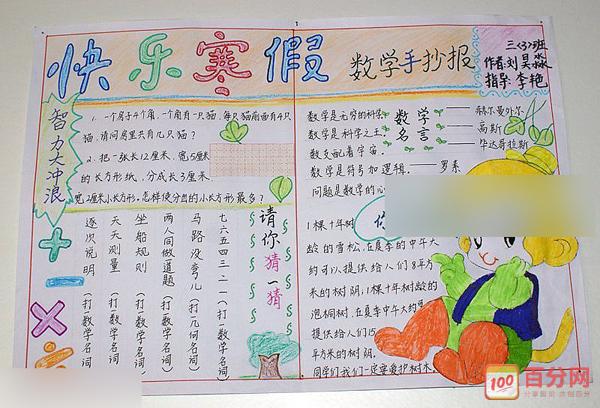 快乐寒假
数学手抄报
三〈3〉班
作者:刘昊淼
指导:李艳
智力大冲浪
1. 一个房子4个角,一个角有一只猫,每只猫前面有4只
猫,请问房里共有几只猫?
2. 把一张长12厘米,宽5厘米
的长方形纸,分成长3厘米,
宽2厘米小长方形,怎样使分出的小长方形最多?
数学名言
数学是无穷的科学 —— 赫尔曼外尔
数学是科学之王 —— 高斯
数支配着宇宙。—— 毕达哥拉斯
数学是符号加逻辑。—— 罗素
问题是数学的心
请你猜一猜
七六五四三二一(打一数学名词)
马路没弯儿(打一几何名词)
两人同做道题(打一数学名词)
坐船规则(打一数学名词)
天天测量(打一数学名词)
逐次说明(打一数学名词)
你
1棵十年树
龄的雪松,在夏季的中午大
约可以提供给人们8平方
米的树阴;1棵十年树龄的
泡桐树,在夏季中午大约
提供给人们15
平方米的树阴。
同学们我们一定要爱护树木
+
－
×
÷
100
百分网
分享知识 共创百分